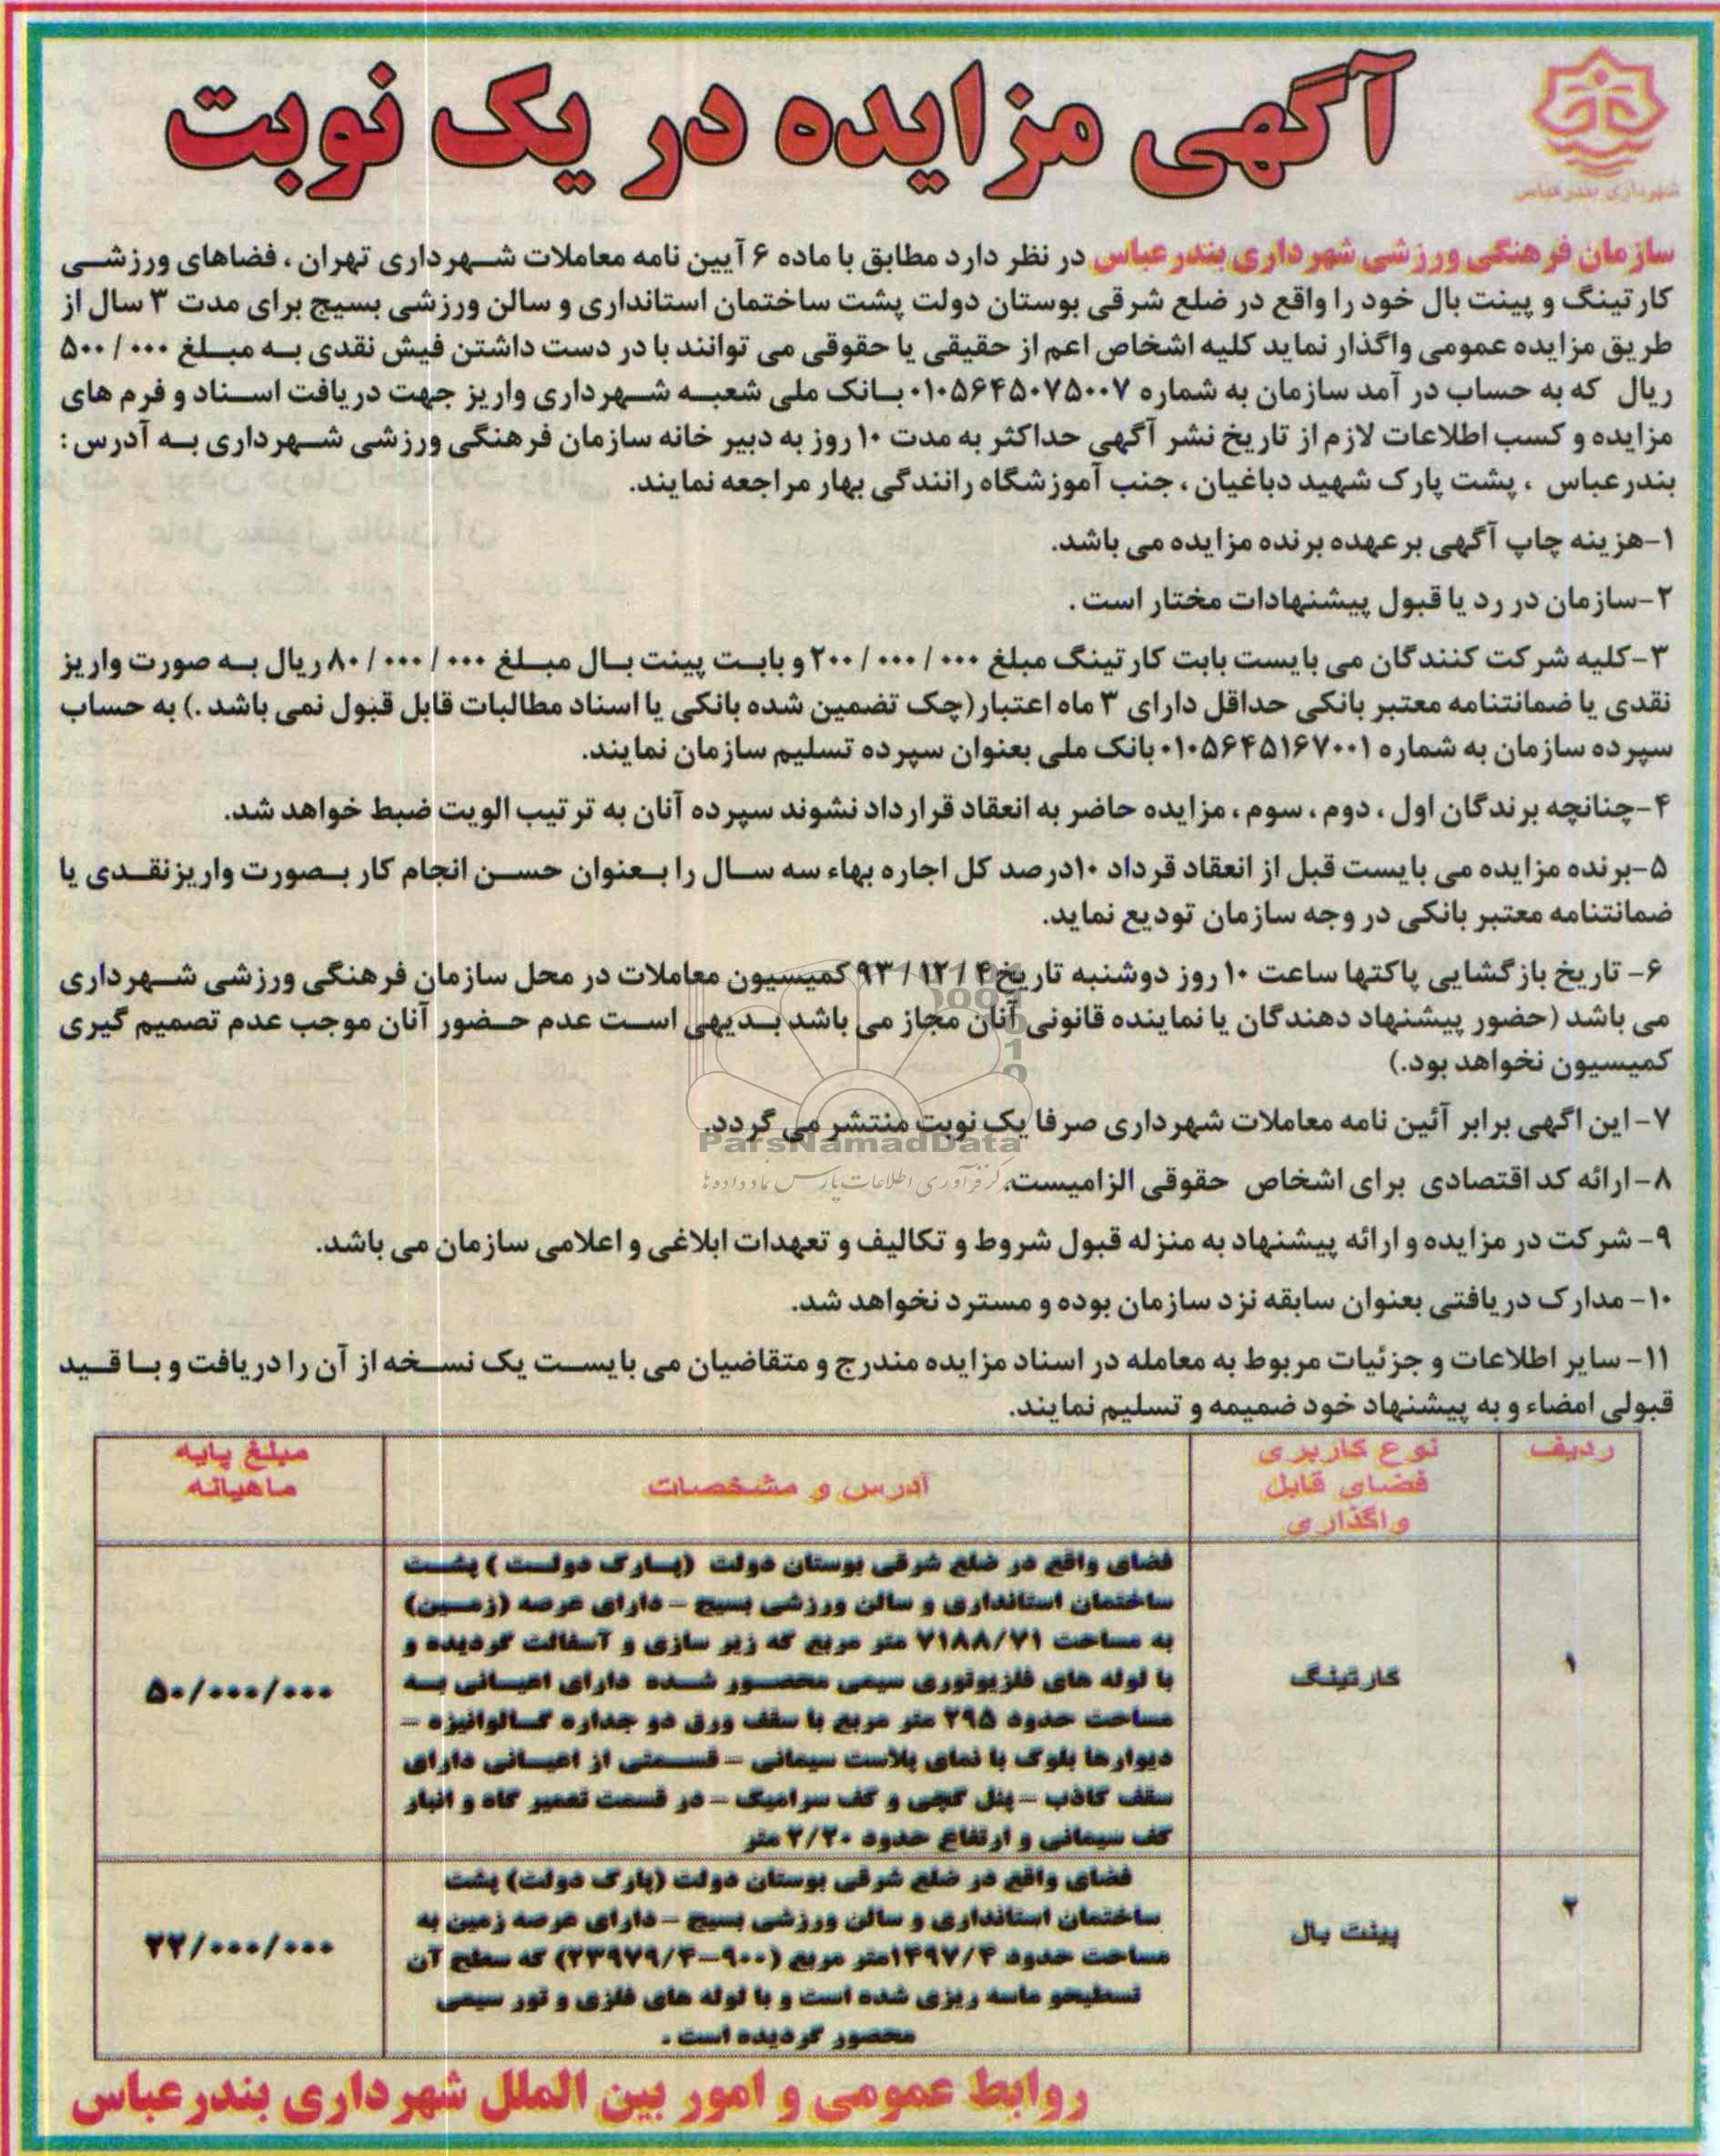 آگهی مزایده در یک نوبت
شهرداری بندرعباس
سازمان فرهنگی ورزشی شهرداری بندرعباس در نظر دارد مطابق با ماده ۶ آیین نامه معاملات شهرداری تهران ، فضاهای ورزشی
کارتینگ و پینت بال خود را واقع در ضلع شرقی بوستان دولت پشت ساختمان استانداری و سالن ورزشی بسیج برای مدت ۳ سال از
طریق مزایده عمومی واگذار نماید کلیه اشخاص اعم از حقیقی یا حقوقی می توانند با در دست داشتن فیش نقدی به مبلغ ۵۰۰/۰۰۰
ریال که به حساب در آمد سازمان به شماره ۰۱۰۵۶۴۵۰۷۵۰۰۷ بانک ملی شعبه شهرداری واریز جهت دریافت اسناد و فرم های
مزایده و کسب اطلاعات لازم از تاریخ نشر آگهی حداکثر به مدت ۱۰ روز به دبیر خانه سازمان فرهنگی ورزشی شهرداری به آدرس :
بندرعباس ، پشت پارک شهید دباغیان ، جنب آموزشگاه رانندگی بهار مراجعه نمایند.
۱-هزینه چاپ آگهی بر عهده برنده مزایده می باشد.
۲-سازمان در رد یا قبول پیشنهادات مختار است .
۳-کلیه شرکت کنندگان می بایست بابت کارتینگ مبلغ ۲۰۰/۰۰۰/۰۰۰ و بابت پینت بال مبلغ ۸۰/۰۰۰/۰۰۰ ریال به صورت واریز
نقدی یا ضمانتنامه معتبر بانکی حداقل دارای ۳ ماه اعتبار(چک تضمین شده بانکی یا اسناد مطالبات قابل قبول نمی باشد .) به حساب
سپرده سازمان به شماره ۰۱۰۵۶۴۵۱۶۷۰۰۱ بانک ملی بعنوان سپرده تسلیم سازمان نمایند.
۴-چنانچه برندگان اول ، دوم ، سوم ، مزایده حاضر به انعقاد قرارداد نشوند سپرده آنان به ترتیب الویت ضبط خواهد شد.
۵-برنده مزایده می بایست قبل از انعقاد قرداد ۱۰درصد کل اجاره بهاء سه سال را بعنوان حسن انجام کار بصورت واریزنقدی یا
ضمانتنامه معتبر بانکی در وجه سازمان تودیع نماید.
۶- تاریخ بازگشایی پاکتها ساعت ۱۰ روز دوشنبه تاریخ ۹۳/۱۲/۴ کمیسیون معاملات در محل سازمان فرهنگی ورزشی شهرداری
می باشد (حضور پیشنهاد دهندگان یا نماینده قانونی آنان مجاز می باشد بدیهی است عدم حضور آنان موجب عدم تصمیم گیری
کمیسیون نخواهد بود.)
۷- این اگهی برابر آئین نامه معاملات شهرداری صرفا یک نوبت منتشر می گردد.
ParsNamadData
۸- ارائه کد اقتصادی برای اشخاص حقوقی الزامیست.
مرکز فرآوری اطلاعات پارس نماد داده ها
۹- شرکت در مزایده و ارائه پیشنهاد به منزله قبول شروط و تکالیف و تعهدات ابلاغی و اعلامی سازمان می باشد.
۱۰- مدارک دریافتی بعنوان سابقه نزد سازمان بوده و مسترد نخواهد شد.
۱۱- سایر اطلاعات و جزئیات مربوط به معامله در اسناد مزایده مندرج و متقاضیان می بایست یک نسخه از آن را دریافت و با قید
قبولی امضاء و به پیشنهاد خود ضمیمه و تسلیم نمایند.
ردیف
نوع کاربری
فضای قابل
واگذاری
آدرس و مشخصات
مبلغ پایه
ماهیانه
۱
کارتینگ
فضای واقع در ضلع شرقی بوستان دولت (پارک دولت ) پشت
ساختمان استانداری و سالن ورزشی بسیج – دارای عرصه (زمین)
به مساحت ۷۱۸۸/۷۱ متر مربع که زیر سازی و آسفالت گردیده و
با لوله های فلزیوتوری سیمی محصور شده دارای اعیانی به
مساحت حدود ۲۹۵ متر مربع با سقف ورق دو جداره گالوانیزه –
دیوارها بلوک با نمای پلاست سیمانی – قسمتی از اعیانی دارای
سقف کاذب – پنل گچی و کف سرامیک – در قسمت تعمیر گاه و انبار
کف سیمانی و ارتفاع حدود ۲/۲۰ متر
۵۰/۰۰۰/۰۰۰
۲
پینت بال
فضای واقع در ضلع شرقی بوستان دولت (پارک دولت) پشت
ساختمان استانداری و سالن ورزشی بسیج – دارای عرصه زمین به
مساحت حدود ۱۴۹۷/۴متر مربع (۹۰۰-۲۳۹۷۹/۴) که سطح آن
تسطیحو ماسه ریزی شده است و با لوله های فلزی و تور سیمی
محصور گردیده است .
۲۲/۰۰۰/۰۰۰
روابط عمومی و امور بین الملل شهرداری بندرعباس